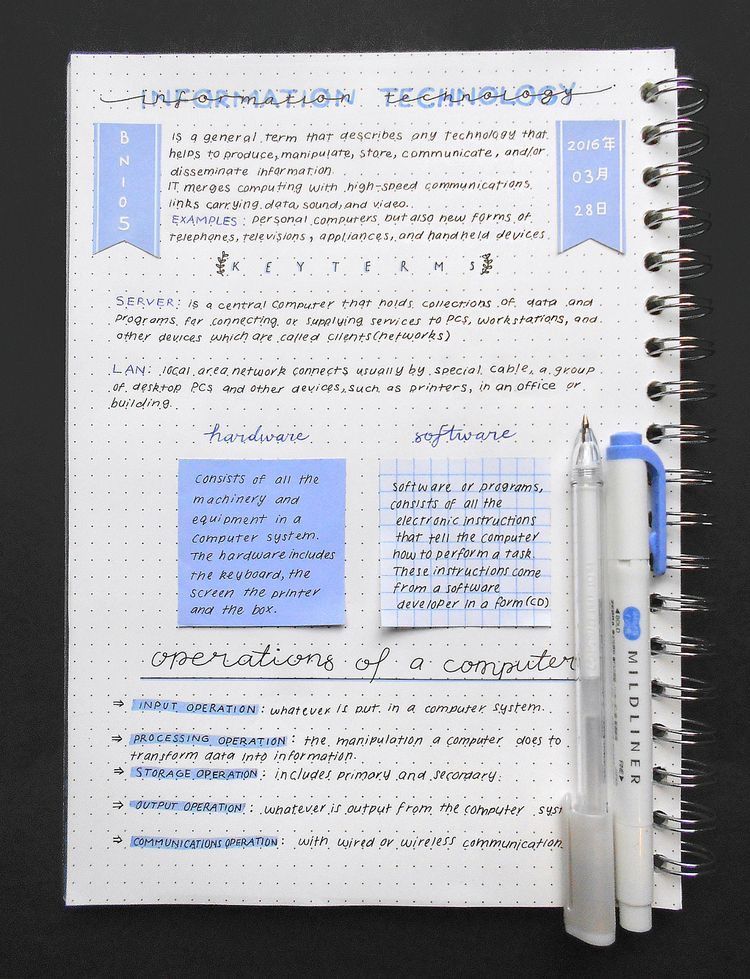 INFORMATION TECHNOLOGY
information technology
BN105
2016年
03月
28日
is a general term that describes any technology that
helps to produce, manipulate, store, communicate, and/or
disseminate information.
IT merges computing with high-speed communications
links carrying data, sound, and video.
EXAMPLES: personal computers but also new forms of
telephones, televisions, appliances, and handheld devices
KEY TERMS
SERVER: is a central computer that holds collections of data and
programs for connecting or supplying services to PCs, workstations, and
other devices which are called clients (networks)
LAN: local area network connects usually by special cable, a group
of desktop PCs and other devices, such as printers, in an office or
building.
hardware
consists of all the
machinery and
equipment in a
computer system.
The hardware includes
the keyboard, the
screen the printer
and the box.
software
software or programs,
consists of all the
electronic instructions
that tell the computer
how to perform a task.
These instructions come
from a software
developer in a form (CD)
operations of a computer
⇒ INPUT OPERATION: whatever is put in a computer system.
⇒ PROCESSING OPERATION: the manipulation a computer does to
transform data into information.
⇒ STORAGE OPERATION: includes primary and secordary.
⇒ OUTPUT OPERATION: whatever is output from the computer syst
⇒ COMMUNICATIONS OPERATION: with wired or wireless communication
BOLD
MILDLINER
FINE